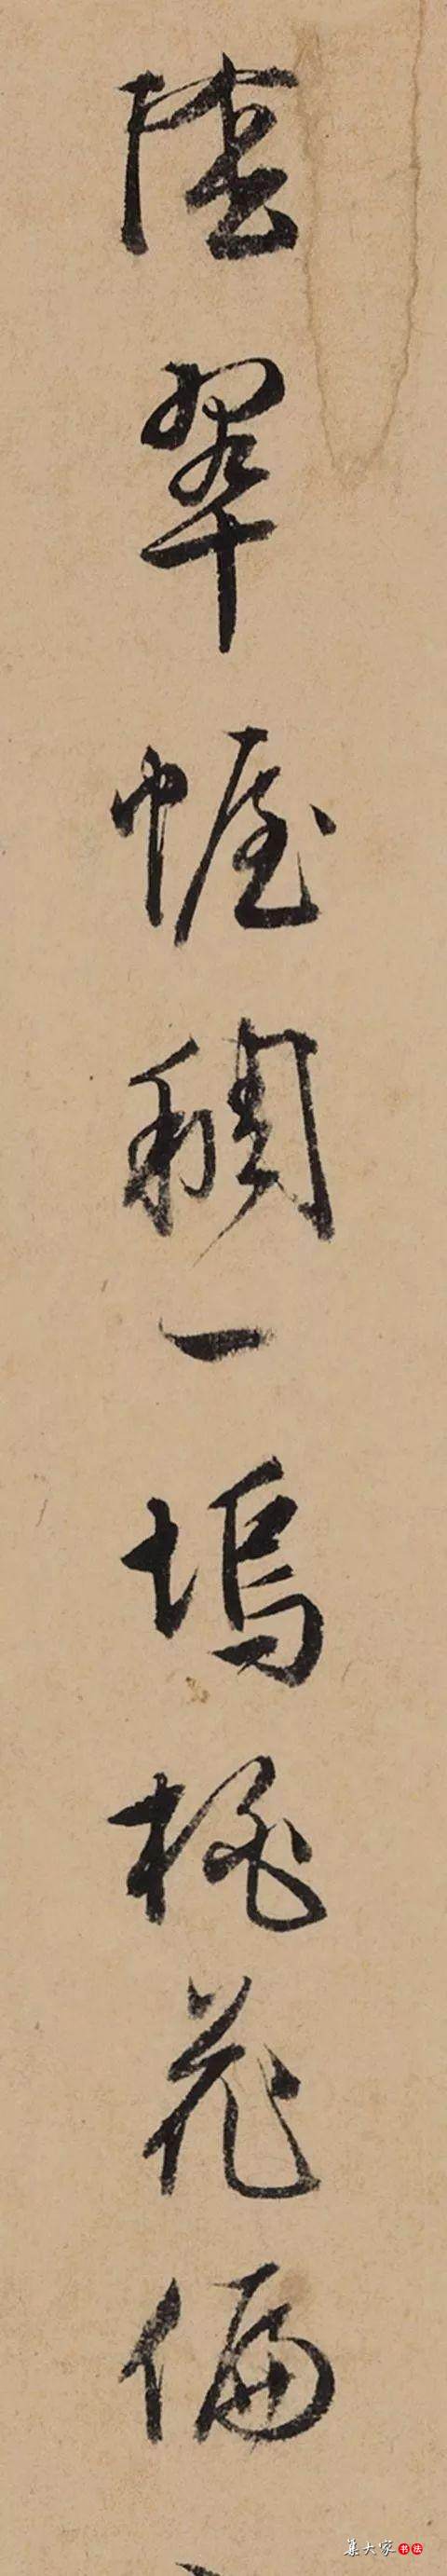 翠幄稠一塢桃花偏
集大家书法